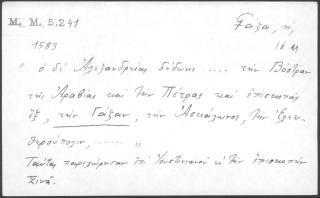 M. M. 5,241
Γάζα, ἡ
1583
16 M
" ὁ δὲ Ἀλεξανδρείας δέδωκε ..... τὴν Βόστραν
τῆς Ἀραβίας καὶ τὴν Πέτρας καὶ ἐπισκοπὰς
ἕξ, τὴν Γάζαν, τὴν Ἀσκάλωνος, τὴν Ἐλευ-
θερούπολιν, ........ "
Ταύτας παρεχώρησαν ἐπὶ Ἰουστινιανοῦ κ. τὴν ἐπισκοπὴν
Σινᾶ.